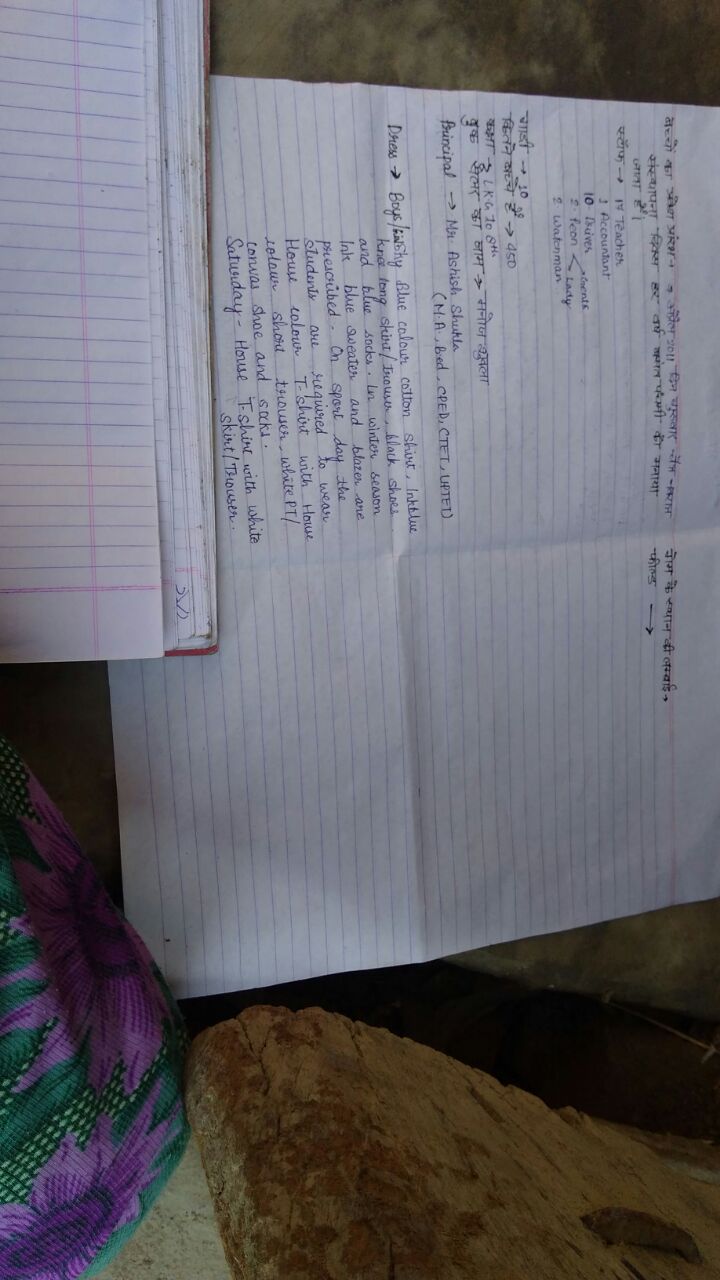 बच्चों का प्रवेश प्रारंभ → 7 अप्रैल 2011 दिन
संस्थापना दिवस हर वर्ष बसंत पंचमी को मनाया
जाता है।
स्टॉफ → 17 Teacher
1 Accountant
10 Driver
2 Peon < Gents
Lady
2 Watchman
गाडी → 10
कितने बच्चे हैं → 450
कक्षा → LKG To 8th
बुक सेलर का नाम → मनोज शुक्ला
Principal → Mr. Ashish Shukla
(M.A., B.ed, CPED, CTET, UPTET)
Dress → Boys/ Sky Blue colour cotton shirt, Inkblue
knee long skirt/Trouser, black shoes
and blue socks. In winter season
Ink blue sweater and blazer are
prescribed. On sport day the
students are required to wear
House colour T-shirt with House
colour short trouser, white PT/
canvas shoe and socks.
Saturday - House T-shirt with white
skirt/Trouser.
के स्थान की लम्बाई →
फील्ड →